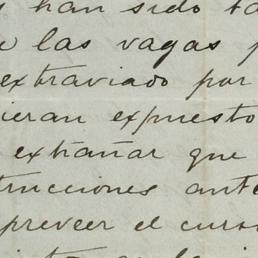 s han sido ta
e las vagas p
extraviado por
ieran expuesto
extrañar que
trucciones ante
preveer el curso